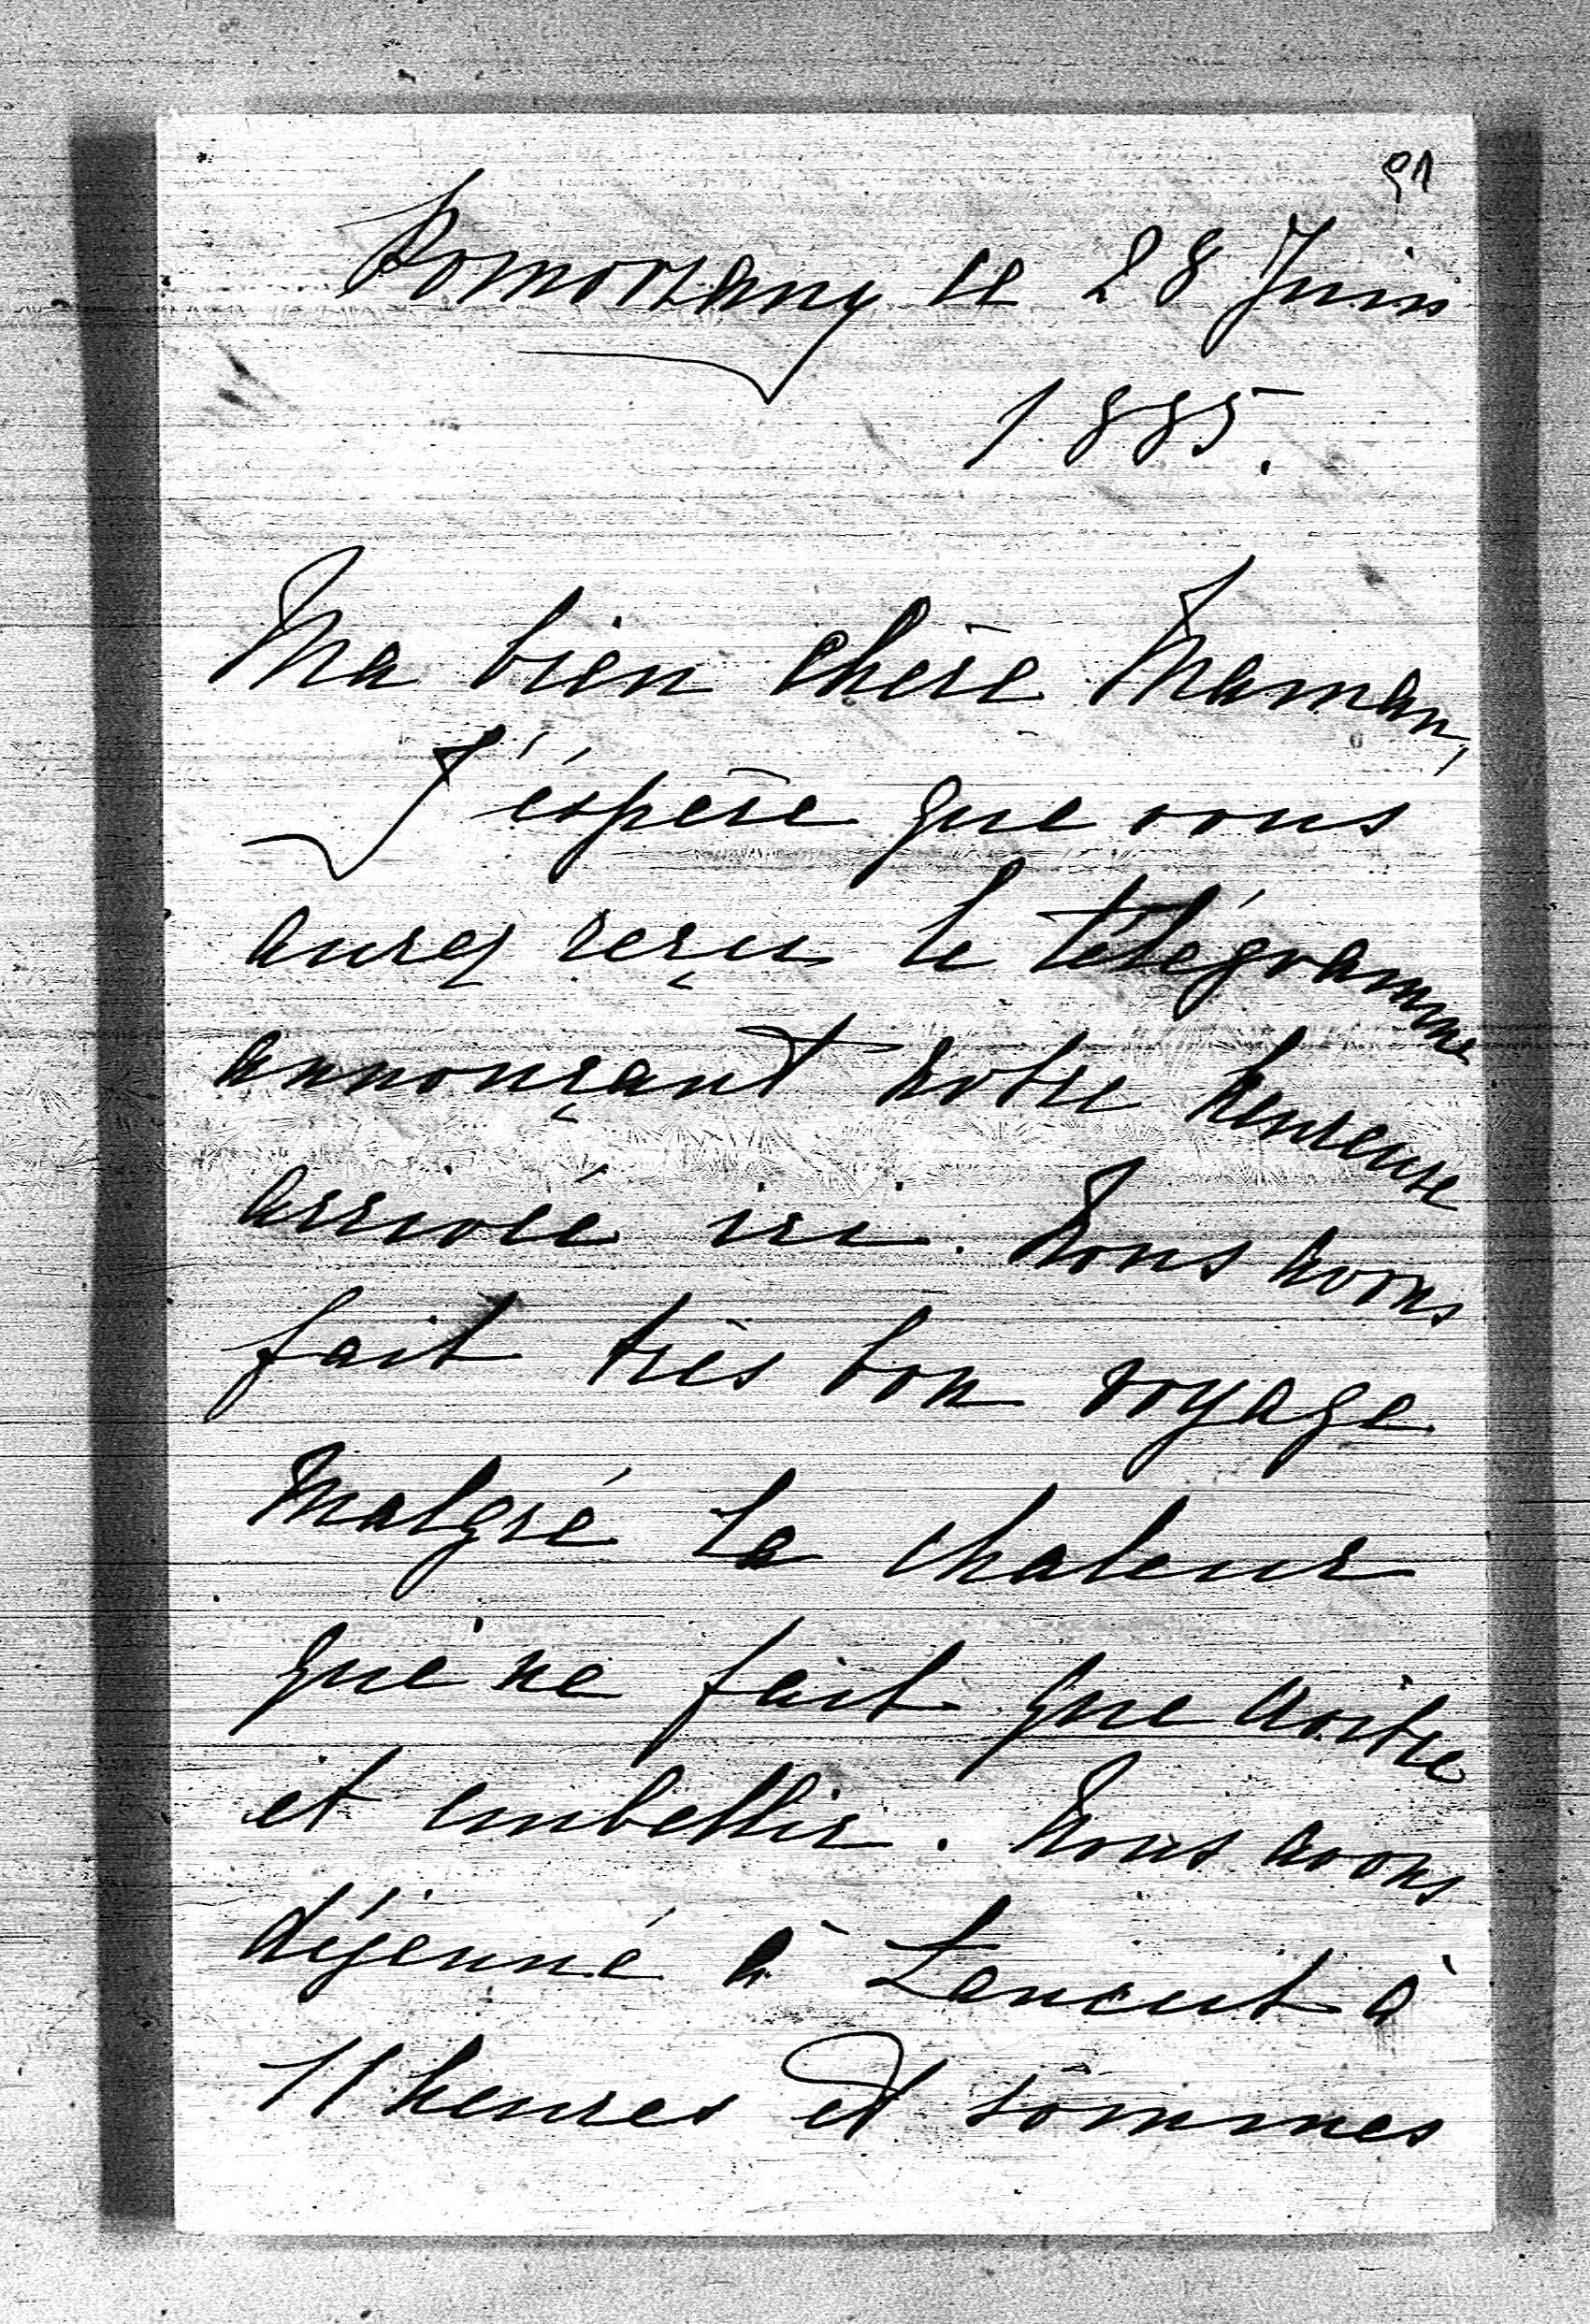 91
Pomorzany le 28 Juin
1885.
Ma bien chère Maman,
J'éspère que vous
aurez reçu le télégramme
annonçant notre heureuse
arrivée ici. Nous avons
fait très bon voyage
malgré la chaleur
qui ne fait que croitre
et embellir. Nous avons
déjeuné à Lancut à
11 heures et sommes